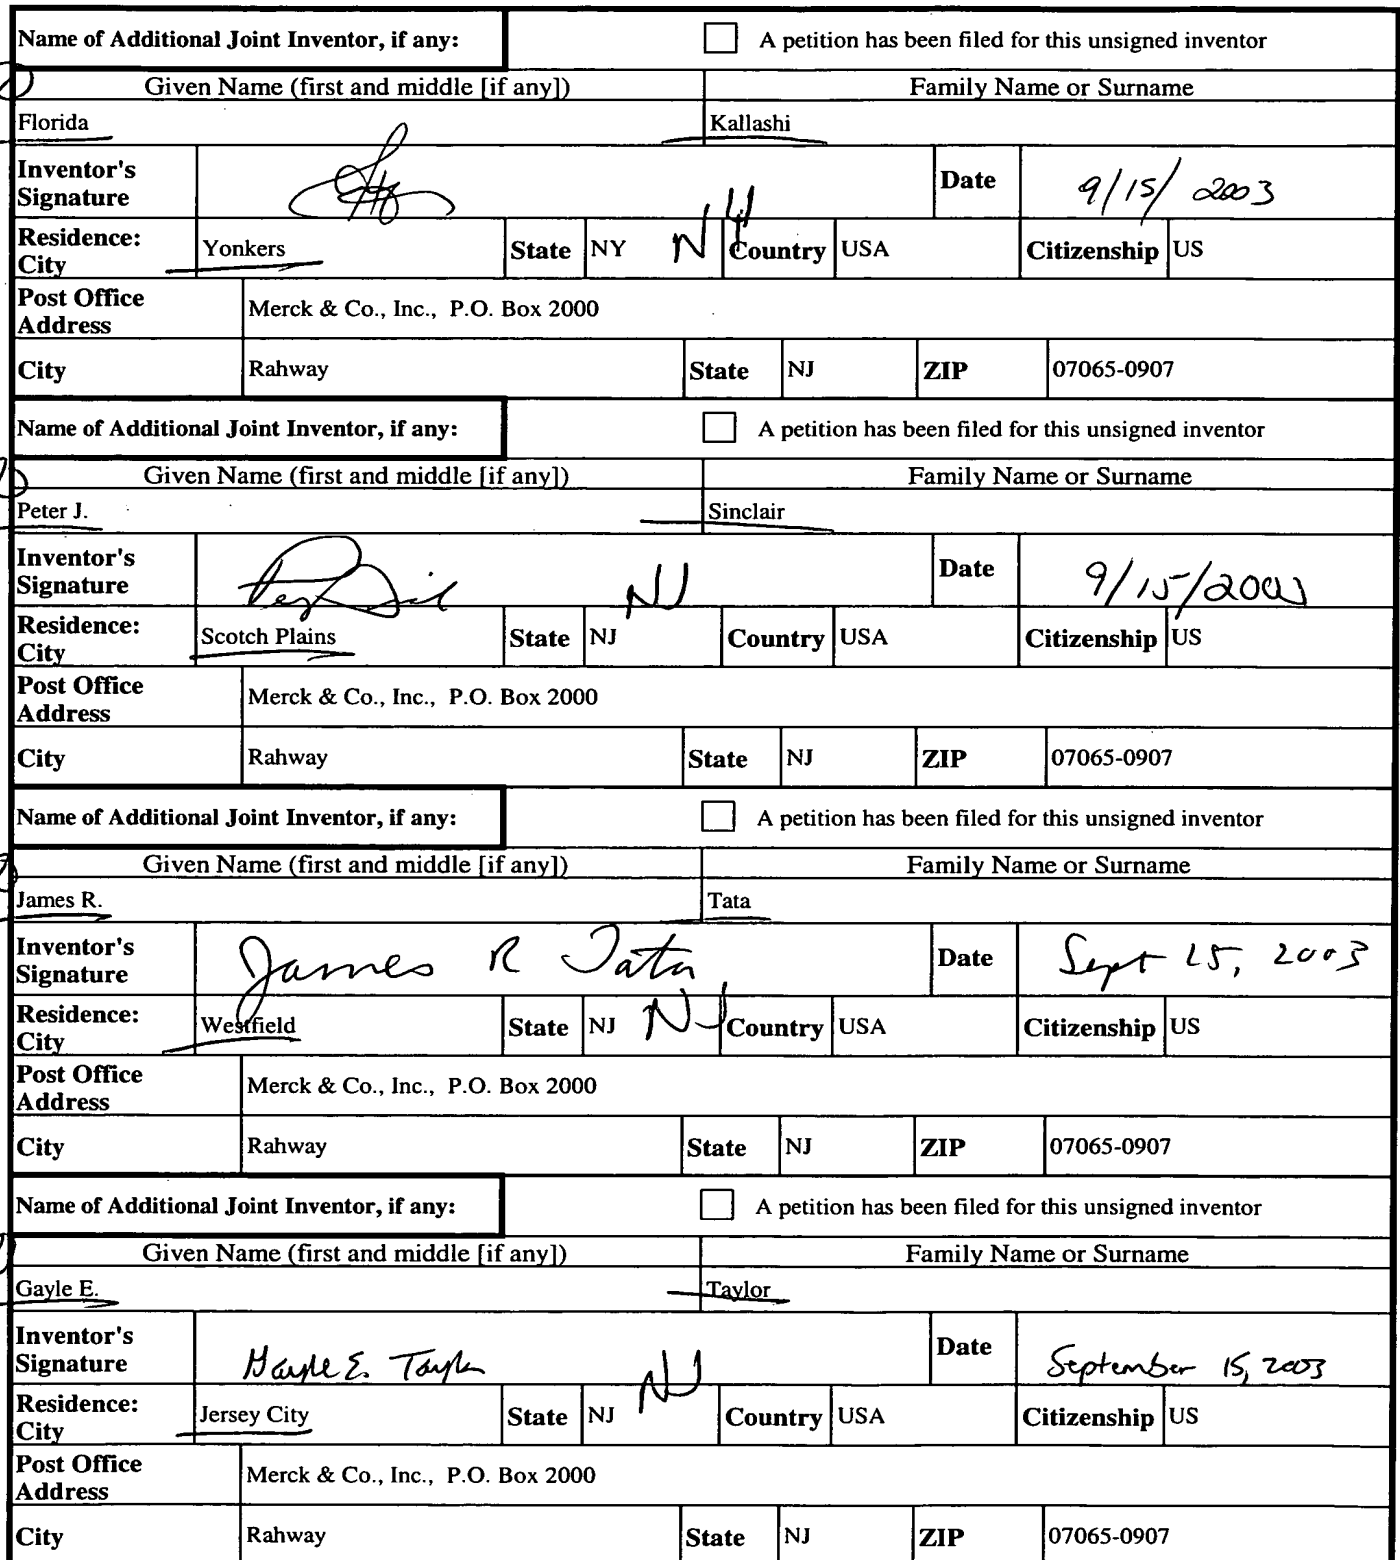 Name of Additional Joint Inventor, if any: A petition has been filed for this unsigned inventor
Given Name (first and middle [if any]) Family Name or Surname
Florida Kallashi
Inventor's Signature Date 9/15/2003
Residence: City Yonkers State NY NY Country USA Citizenship US
Post Office Address Merck & Co., Inc., P.O. Box 2000
City Rahway State NJ ZIP 07065-0907
Name of Additional Joint Inventor, if any: A petition has been filed for this unsigned inventor
Given Name (first and middle [if any]) Family Name or Surname
Peter J. Sinclair
Inventor's Signature Date 9/15/2003
NJ
Residence: City Scotch Plains State NJ Country USA Citizenship US
Post Office Address Merck & Co., Inc., P.O. Box 2000
City Rahway State NJ ZIP 07065-0907
Name of Additional Joint Inventor, if any: A petition has been filed for this unsigned inventor
Given Name (first and middle [if any]) Family Name or Surname
James R. Tata
Inventor's Signature James R Tata Date Sept 15, 2003
Residence: City Westfield State NJ NJ Country USA Citizenship US
Post Office Address Merck & Co., Inc., P.O. Box 2000
City Rahway State NJ ZIP 07065-0907
Name of Additional Joint Inventor, if any: A petition has been filed for this unsigned inventor
Given Name (first and middle [if any]) Family Name or Surname
Gayle E. Taylor
Inventor's Signature Gayle E. Taylor Date September 15, 2003
NJ
Residence: City Jersey City State NJ Country USA Citizenship US
Post Office Address Merck & Co., Inc., P.O. Box 2000
City Rahway State NJ ZIP 07065-0907